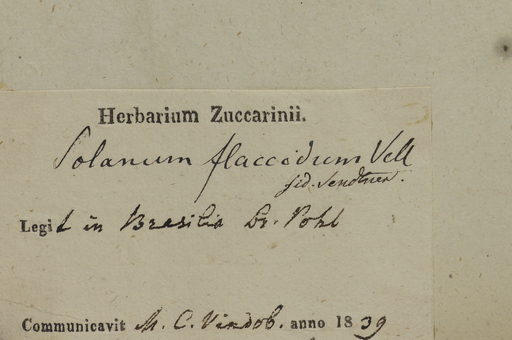 Herbarium Zuccarinii.
Solanum flaccidum Vell
fid. Sendtner.
Legit in Brasilia Dr. Pohl
Communicavit M. C. Vindob. anno 1839